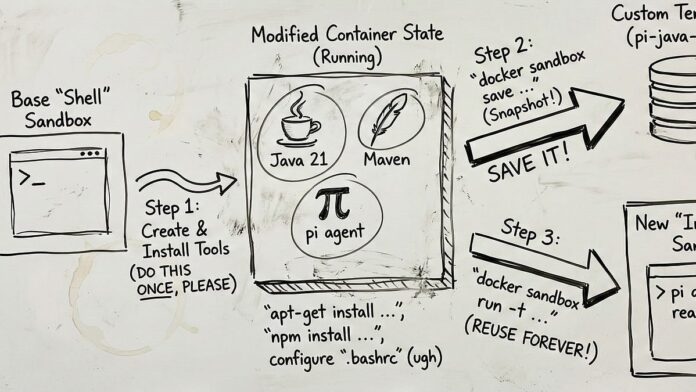 Base "Shell"
Sandbox
>_
Step 1:
Create &
Install Tools
(DO THIS
ONCE, PLEASE)
Modified Container State
(Running)
Java 21
Maven
π
pi agent
"apt-get install ...",
"npm install ...",
configure ".bashrc" (ugh)
Step 2:
"docker sandbox
save ..."
(Snapshot!)
SAVE IT!
Custom Te
(pi-java-
Step 3:
"docker sandbox
run -t ..."
(REUSE FOREVER!)
New "I
San
> pi a
rea